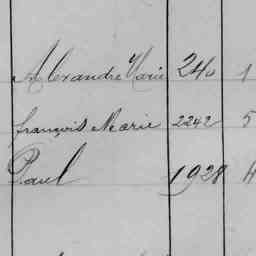 Alexandre Marie 240 1
François Marie 2242 5
Paul 1928 4